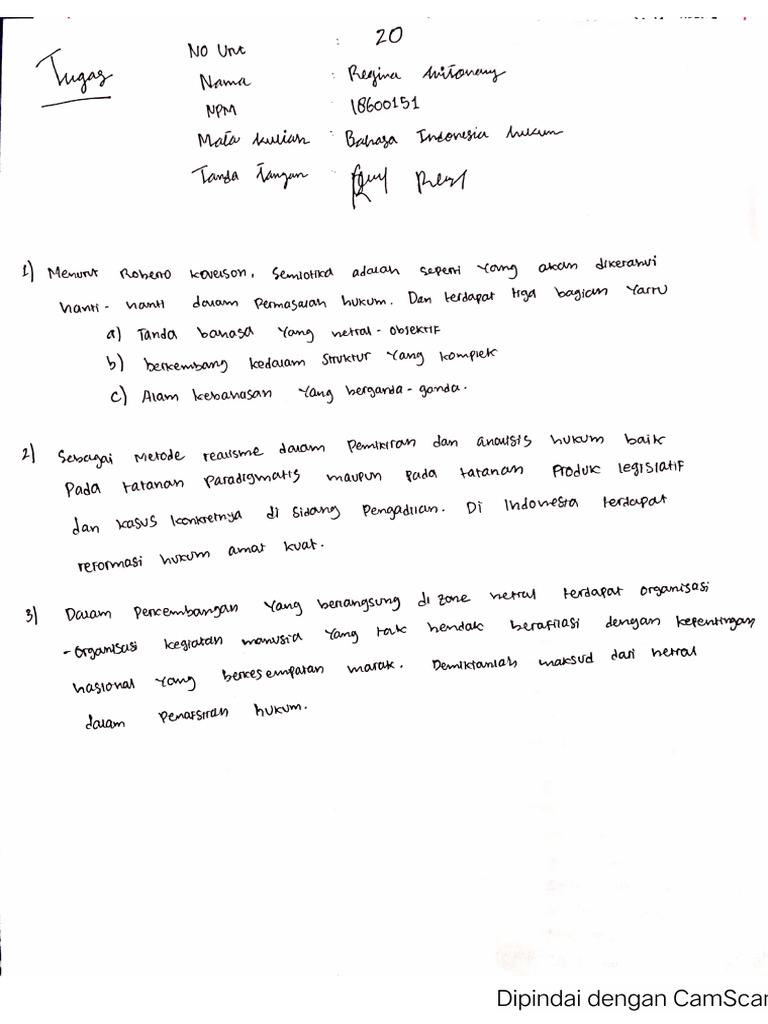 Tugas
No Urut : 20
Nama : Regina
NPM : 18600151
Mata kuliah : Bahasa Indonesia hukum
Tanda Tangan :
1) Menurut Roberto kevelson, Semiotika adalah seperti yang akan diketahui
nanti - nanti dalam Permasalah hukum. Dan terdapat tiga bagian Yaitu
a) Tanda bahasa Yang netral - objektif
b) berkembang kedalam struktur Yang komplek
c) Alam kebahasan Yang berganda - ganda.
2) Sebagai Metode realisme dalam Pemikiran dan analisis hukum baik
Pada tatanan Paradigmatis maupun pada tatanan Produk legislatif
dan kasus konkretnya di Sidang Pengadilan. Di Indonesia terdapat
reformasi hukum amat kuat.
3) Dalam Percembangan Yang berlangsung di zone netral terdapat organisasi
- Organisasi kegiatan manusia Yang tak hendak berafilasi dengan kepentingan
nasional Yang berkesempatan marak. Demiktanlah maksud dari netral
dalam Penafsiran hukum.
Dipindai dengan CamScan